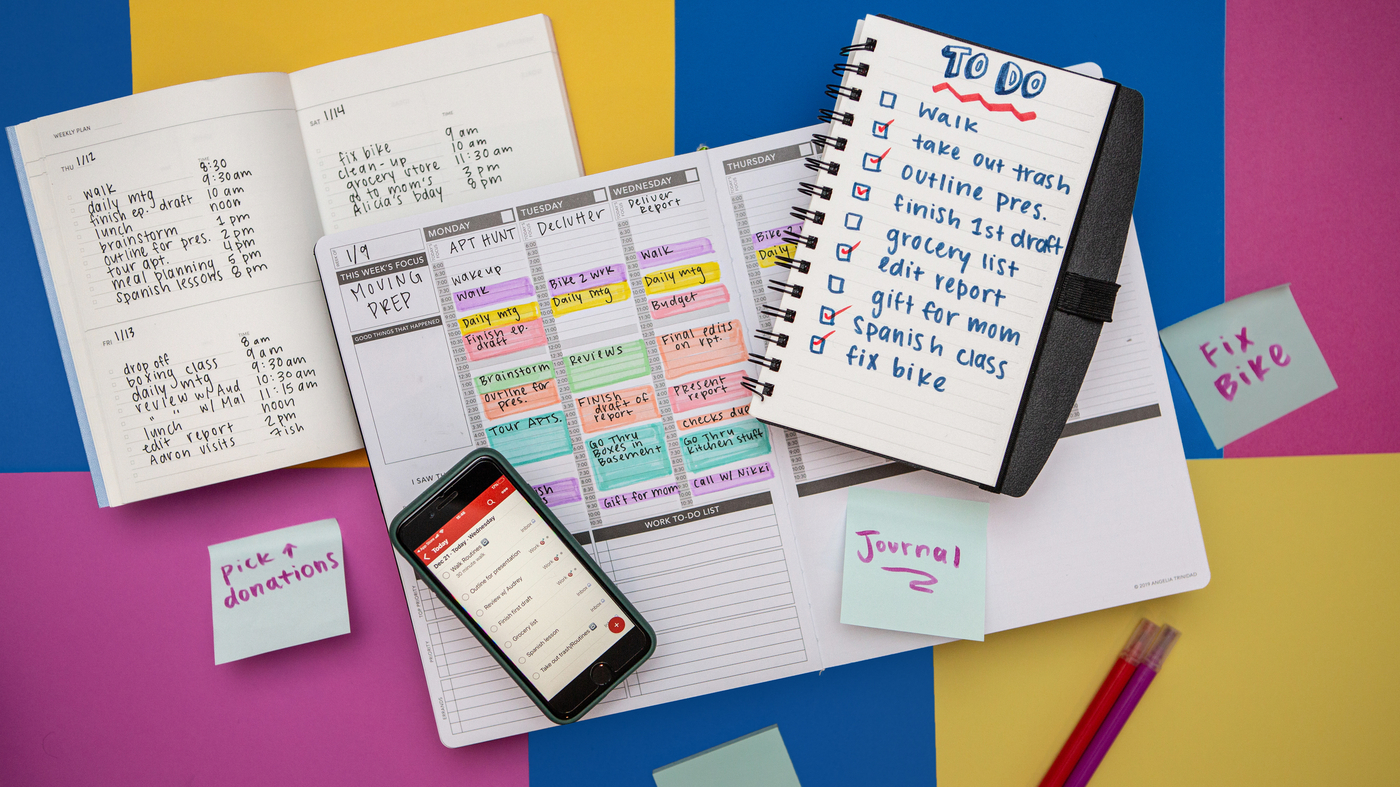 WEEKLY PLAN
THU 1/12
TIME
walk 8:30
daily mtg 9:30am
finish ep. draft 10 am
lunch noon
brainstorm 1 pm
outline for pres. 2 pm
tour apt. 4 pm
meal planning 5 pm
spanish lessons 8 pm
FRI 1/13
TIME
drop off 8 am
boxing class 9 am
daily mtg 9:30 am
review w/ Aud 10:30 am
" " w/ Mal 11:15 am
lunch noon
edit report 2pm
Aaron visits 7ish
SAT 1/14
TIME
fix bike 9 am
clean-up 10 am
grocery store 11:30 am
go to mom's 3 pm
Alicia's bday 8 pm
1/9
THIS WEEK'S FOCUS
MOVING
PREP
GOOD THINGS THAT HAPPENED
I SAW TH
MONDAY
APT HUNT
wake up
Walk
Daily mtg
Finish ep.
draft
Brainstorm
outline for
pres.
Tour APTS.
TUESDAY
Declutter
Bike 2 wrk
Daily mtg
Reviews
FINISH
draft of
report
Go Thru
Boxes in
Basement
Gift for mom
WEDNESDAY
Deliver
Report
Walk
Daily mtg
Budget
Final edits
on rpt.
Present
report
checks due
Go Thru
kitchen stuff
call w/ Nikki
THURSDAY
Bike 2
Daily
WORK TO-DO LIST
ERRANDS
© 2019 ANGELIA TRINIDAD
TO DO
walk
take out trash
outline pres.
finish 1st draft
grocery list
edit report
gift for mom
spanish class
fix bike
Today
Dec 21 · Today · Wednesday
Walk Routines
30 minute walk
Inbox
Outline for presentation
Work
Review w/ Audrey
Work
Finish first draft
Work
Grocery list
Inbox
Spanish lesson
Inbox
Take out trash Routines
Pick ↑
donations
Journal
Fix
Bike